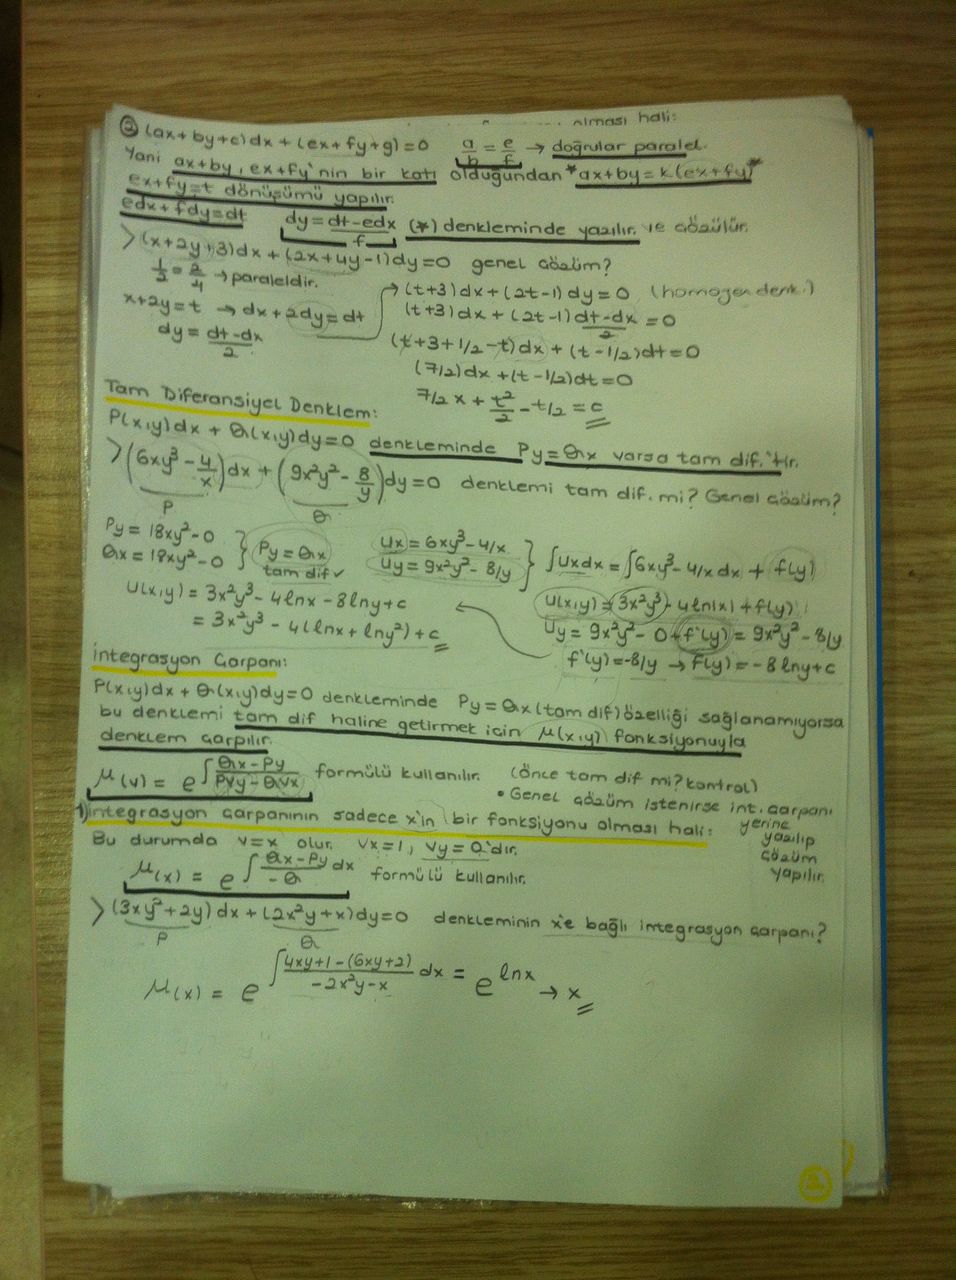 olması hali:
② (ax+by+c)dx + (ex+fy+g)=0 a/b = e/f → doğrular paralel.
Yani ax+by, ex+fy'nin bir katı olduğundan *ax+by=k(ex+fy)*
ex+fy=t dönüşümü yapılır.
edx+fdy=dt dy=dt-edx/f (*) denkleminde yazılır. ve çözülür.
> (x+2y+3)dx + (2x+4y-1)dy=0 genel çözüm?
1/2=2/4 → paraleldir.
x+2y=t → dx+2dy=dt
dy=dt-dx/2
→ (t+3)dx+(2t-1)dy=0 (homogen denk.)
(t+3)dx+(2t-1)dt-dx/2=0
(t+3+1/2-t)dx+(t-1/2)dt=0
(7/2)dx+(t-1/2)dt=0
7/2x+t²/2-t/2=c
Tam Diferansiyel Denklem:
P(x,y)dx + Q(x,y)dy=0 denkleminde Py=Qx varsa tam dif.'tir.
> (6xy³-4/x)dx + (9x²y²-8/y)dy=0 denklemi tam dif. mi? Genel çözüm?
P Q
Py=18xy²-0
Qx=18xy²-0 } Py=Qx
tam dif ✓
Ux=6xy³-4/x
Uy=9x²y²-8/y } ∫Uxdx=∫6xy³-4/x dx + f(y)
U(x,y)=3x²y³-4ln|x|+f(y)
Uy=9x²y²-0+f'(y)=9x²y²-8/y
f'(y)=-8/y → f(y)=-8lny+c
U(x,y)=3x²y³-4lnx-8lny+c
=3x²y³-4(lnx+lny²)+c
İntegrasyon Çarpanı:
P(x,y)dx + Q(x,y)dy=0 denkleminde Py=Qx(tam dif) özelliği sağlanamıyorsa
bu denklemi tam dif haline getirmek için μ(x,y) fonksiyonuyla
denklem çarpılır.
μ(v) = e^∫(Qx-Py)/(PVy-QVx) formülü kullanılır. (Önce tam dif mi? kontrol)
• Genel çözüm istenirse int. çarpanı
yerine
yazılıp
çözüm
yapılır.
1) integrasyon çarpanının sadece x'in bir fonksiyonu olması hali:
Bu durumda v=x olur. Vx=1, Vy=0'dır.
μ(x) = e^∫(Qx-Py)/(-Q) dx formülü kullanılır.
> (3xy²+2y)dx + (2x²y+x)dy=0 denkleminin x'e bağlı integrasyon çarpanı?
P Q
μ(x) = e^∫(4xy+1-(6xy+2))/(-2x²y-x) dx = e^lnx → x